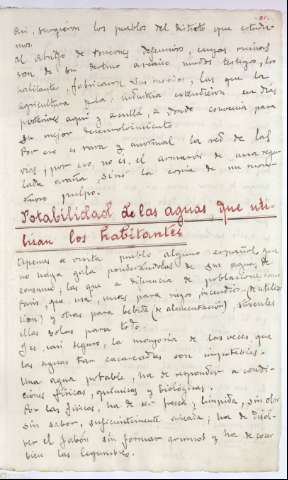 así, surgieron los pueblos del distrito que estudia-
mos.
Al abrigo de torreones defensivos, cuyas ruinas
son de su destino arcaico mudos testigos, los
habitantes, fabricaron sus moradas, las que la
agricultura y la industria extendieron en días
posteriores aquí y acullá, a donde convenía para
su mejor desenvolvimiento.
Por eso es rara y anormal la red de las
vías, y por eso, no es el armazón de una regu-
lada araña sino la copia de un mons-
truoso pulpo.
Potabilidad de las aguas que uti-
lizan los habitantes
Apenas existe pueblo alguno español que
no haga gala ponderándolas de sus aguas de
consumo, las que a diferencia de poblaciones
que usa unas para riego, incendios
y otras para bebida (de alimentación), sírvenles
ellas solas para todo.
Y es casi seguro, la mayoría de las veces que
las aguas tan cacareadas son impotables.
Una agua potable, ha de responder a condi-
ciones físicas, químicas y biológicas.
Por las físicas, ha de ser fresca, límpida, sin olor
sin sabor, suficientemente aireada, ha de disol-
ver el jabón sin formar grumos y ha de cocer
bien las legumbres.